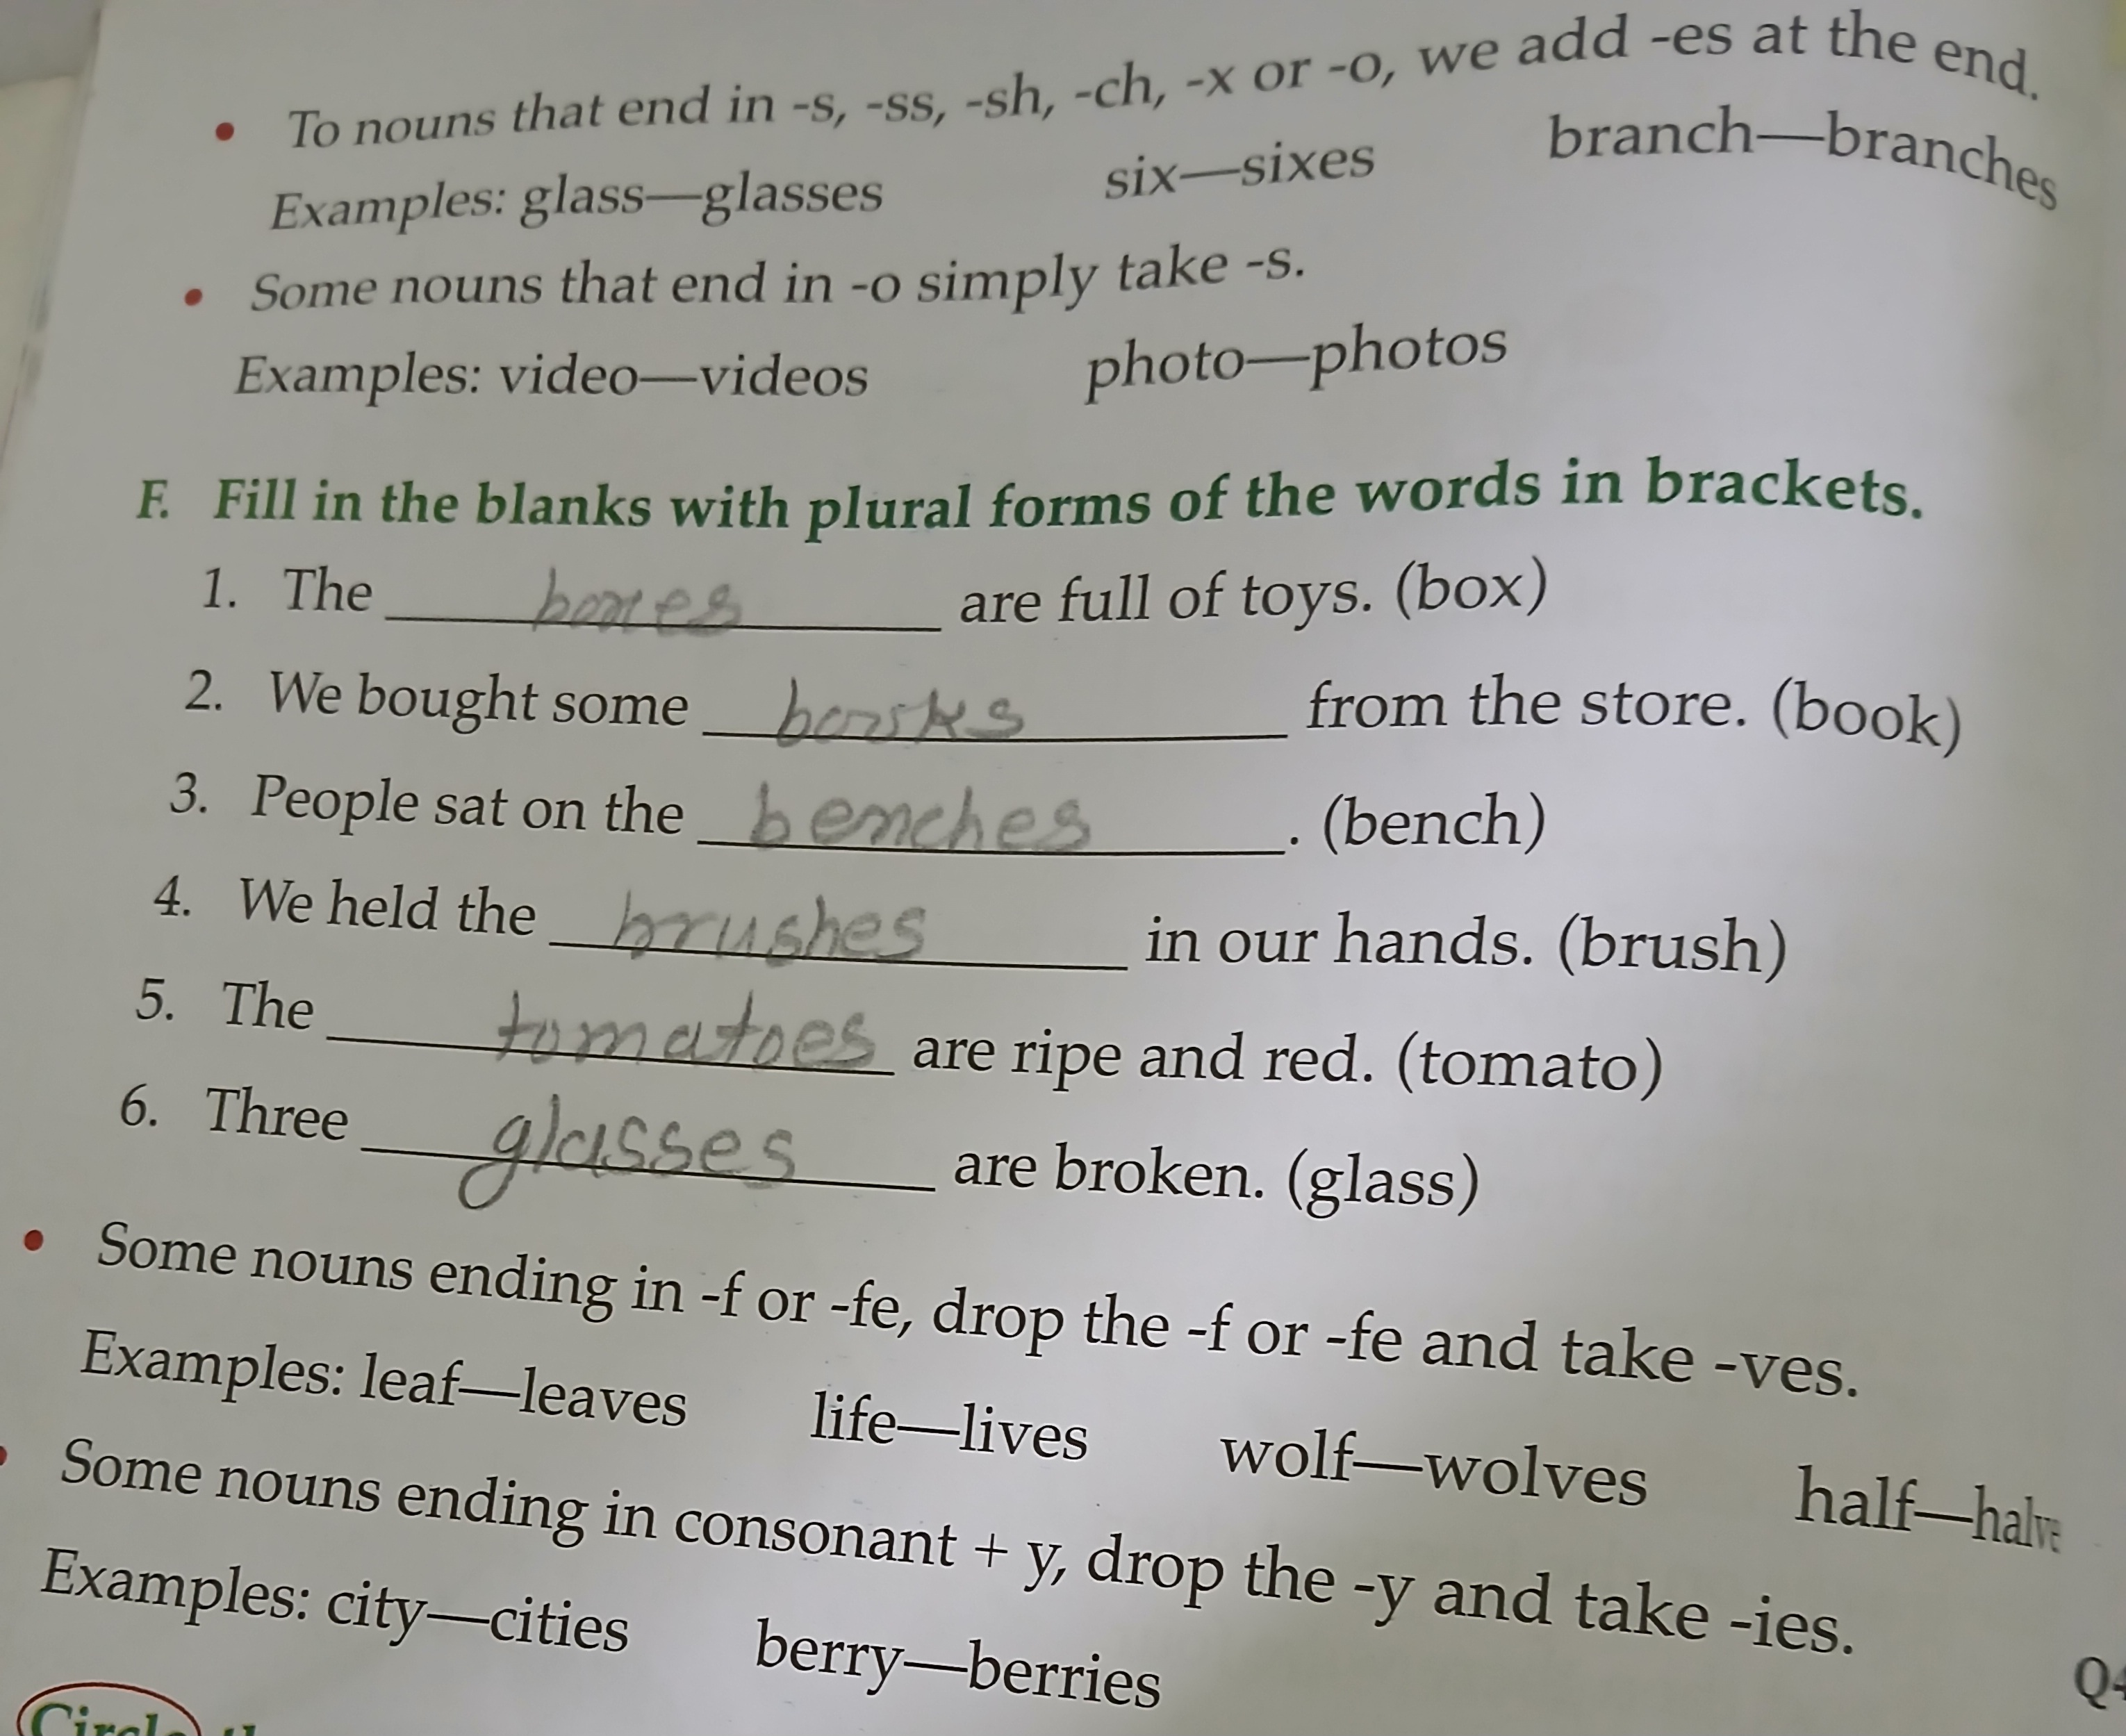 • To nouns that end in -s, -ss, -sh, -ch, -x or -o, we add -es at the end.
Examples: glass—glasses six—sixes branch—branches
• Some nouns that end in -o simply take -s.
Examples: video—videos photo—photos
F. Fill in the blanks with plural forms of the words in brackets.
1. The boxes are full of toys. (box)
2. We bought some books from the store. (book)
3. People sat on the benches. (bench)
4. We held the brushes in our hands. (brush)
5. The tomatoes are ripe and red. (tomato)
6. Three glasses are broken. (glass)
• Some nouns ending in -f or -fe, drop the -f or -fe and take -ves.
Examples: leaf—leaves life—lives wolf—wolves half—halve
• Some nouns ending in consonant + y, drop the -y and take -ies.
Examples: city—cities berry—berries
Circle